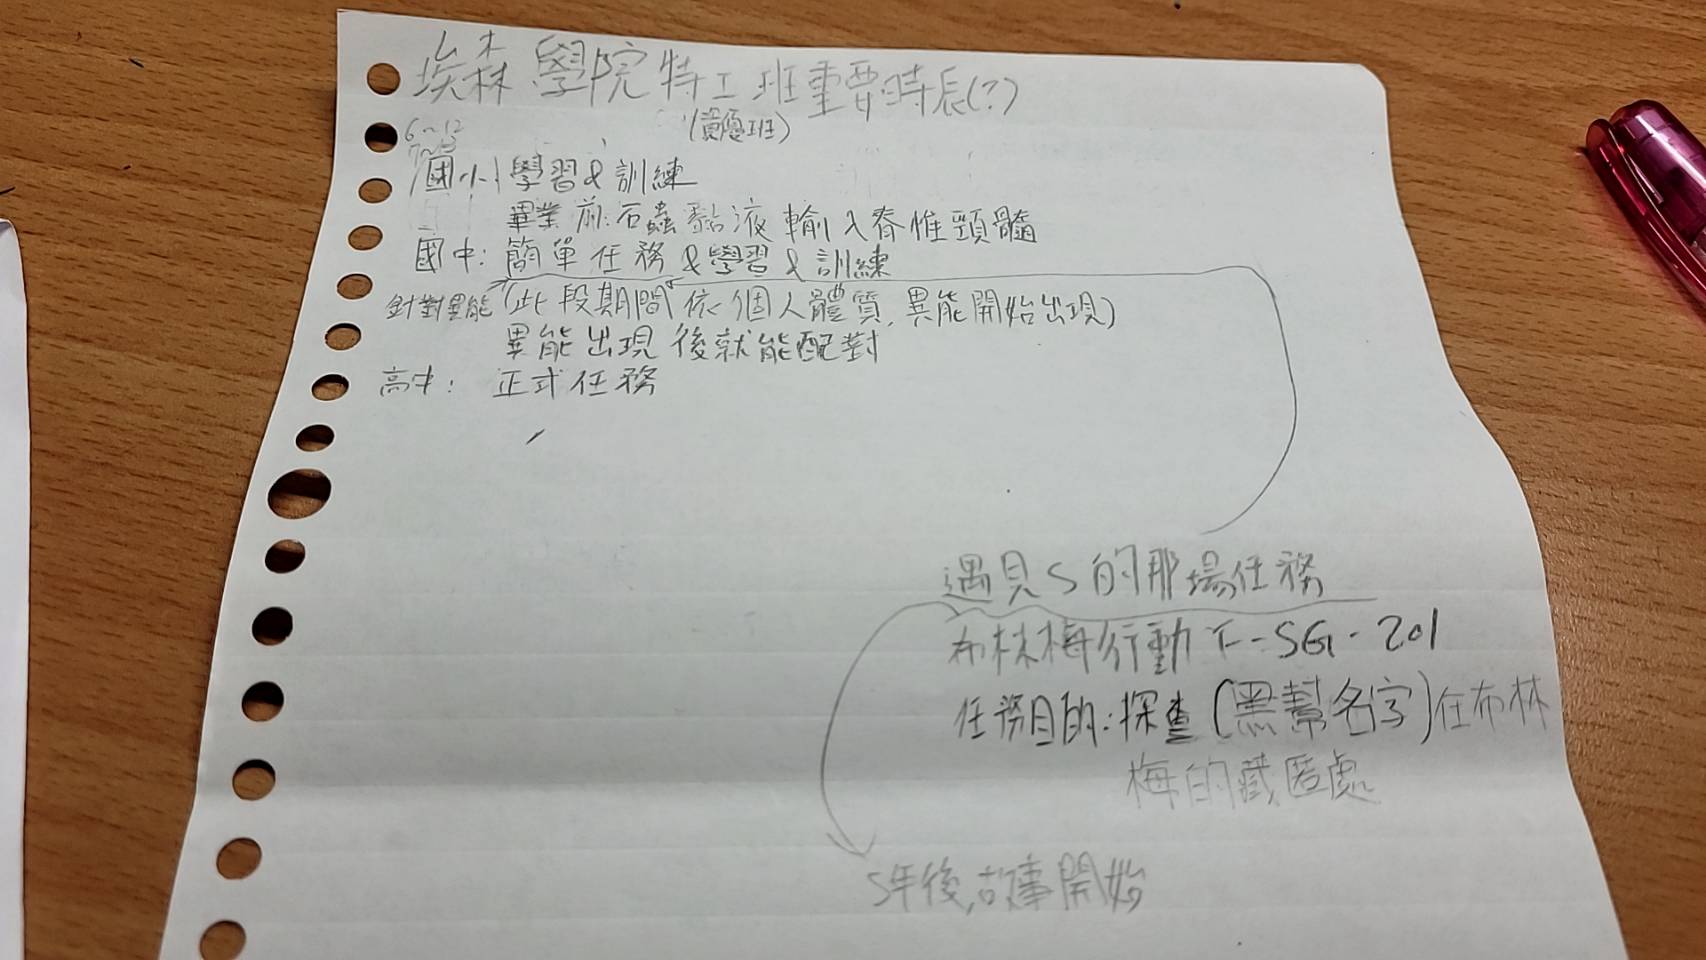 埃森學院特工班重要時長(?)
(資優班)
6~12
7~13
國小 學習&訓練
畢業前:石蟲黏液輸入脊椎頸髓
國中: 簡單任務&學習&訓練
針對異能 (此段期間依個人體質,異能開始出現)
異能出現後就能配對
高中: 正式任務
遇見S的那場任務
布林梅行動 T-SG-201
任務目的:探查(黑幫名字)在布林
梅的藏匿處
5年後,故事開始